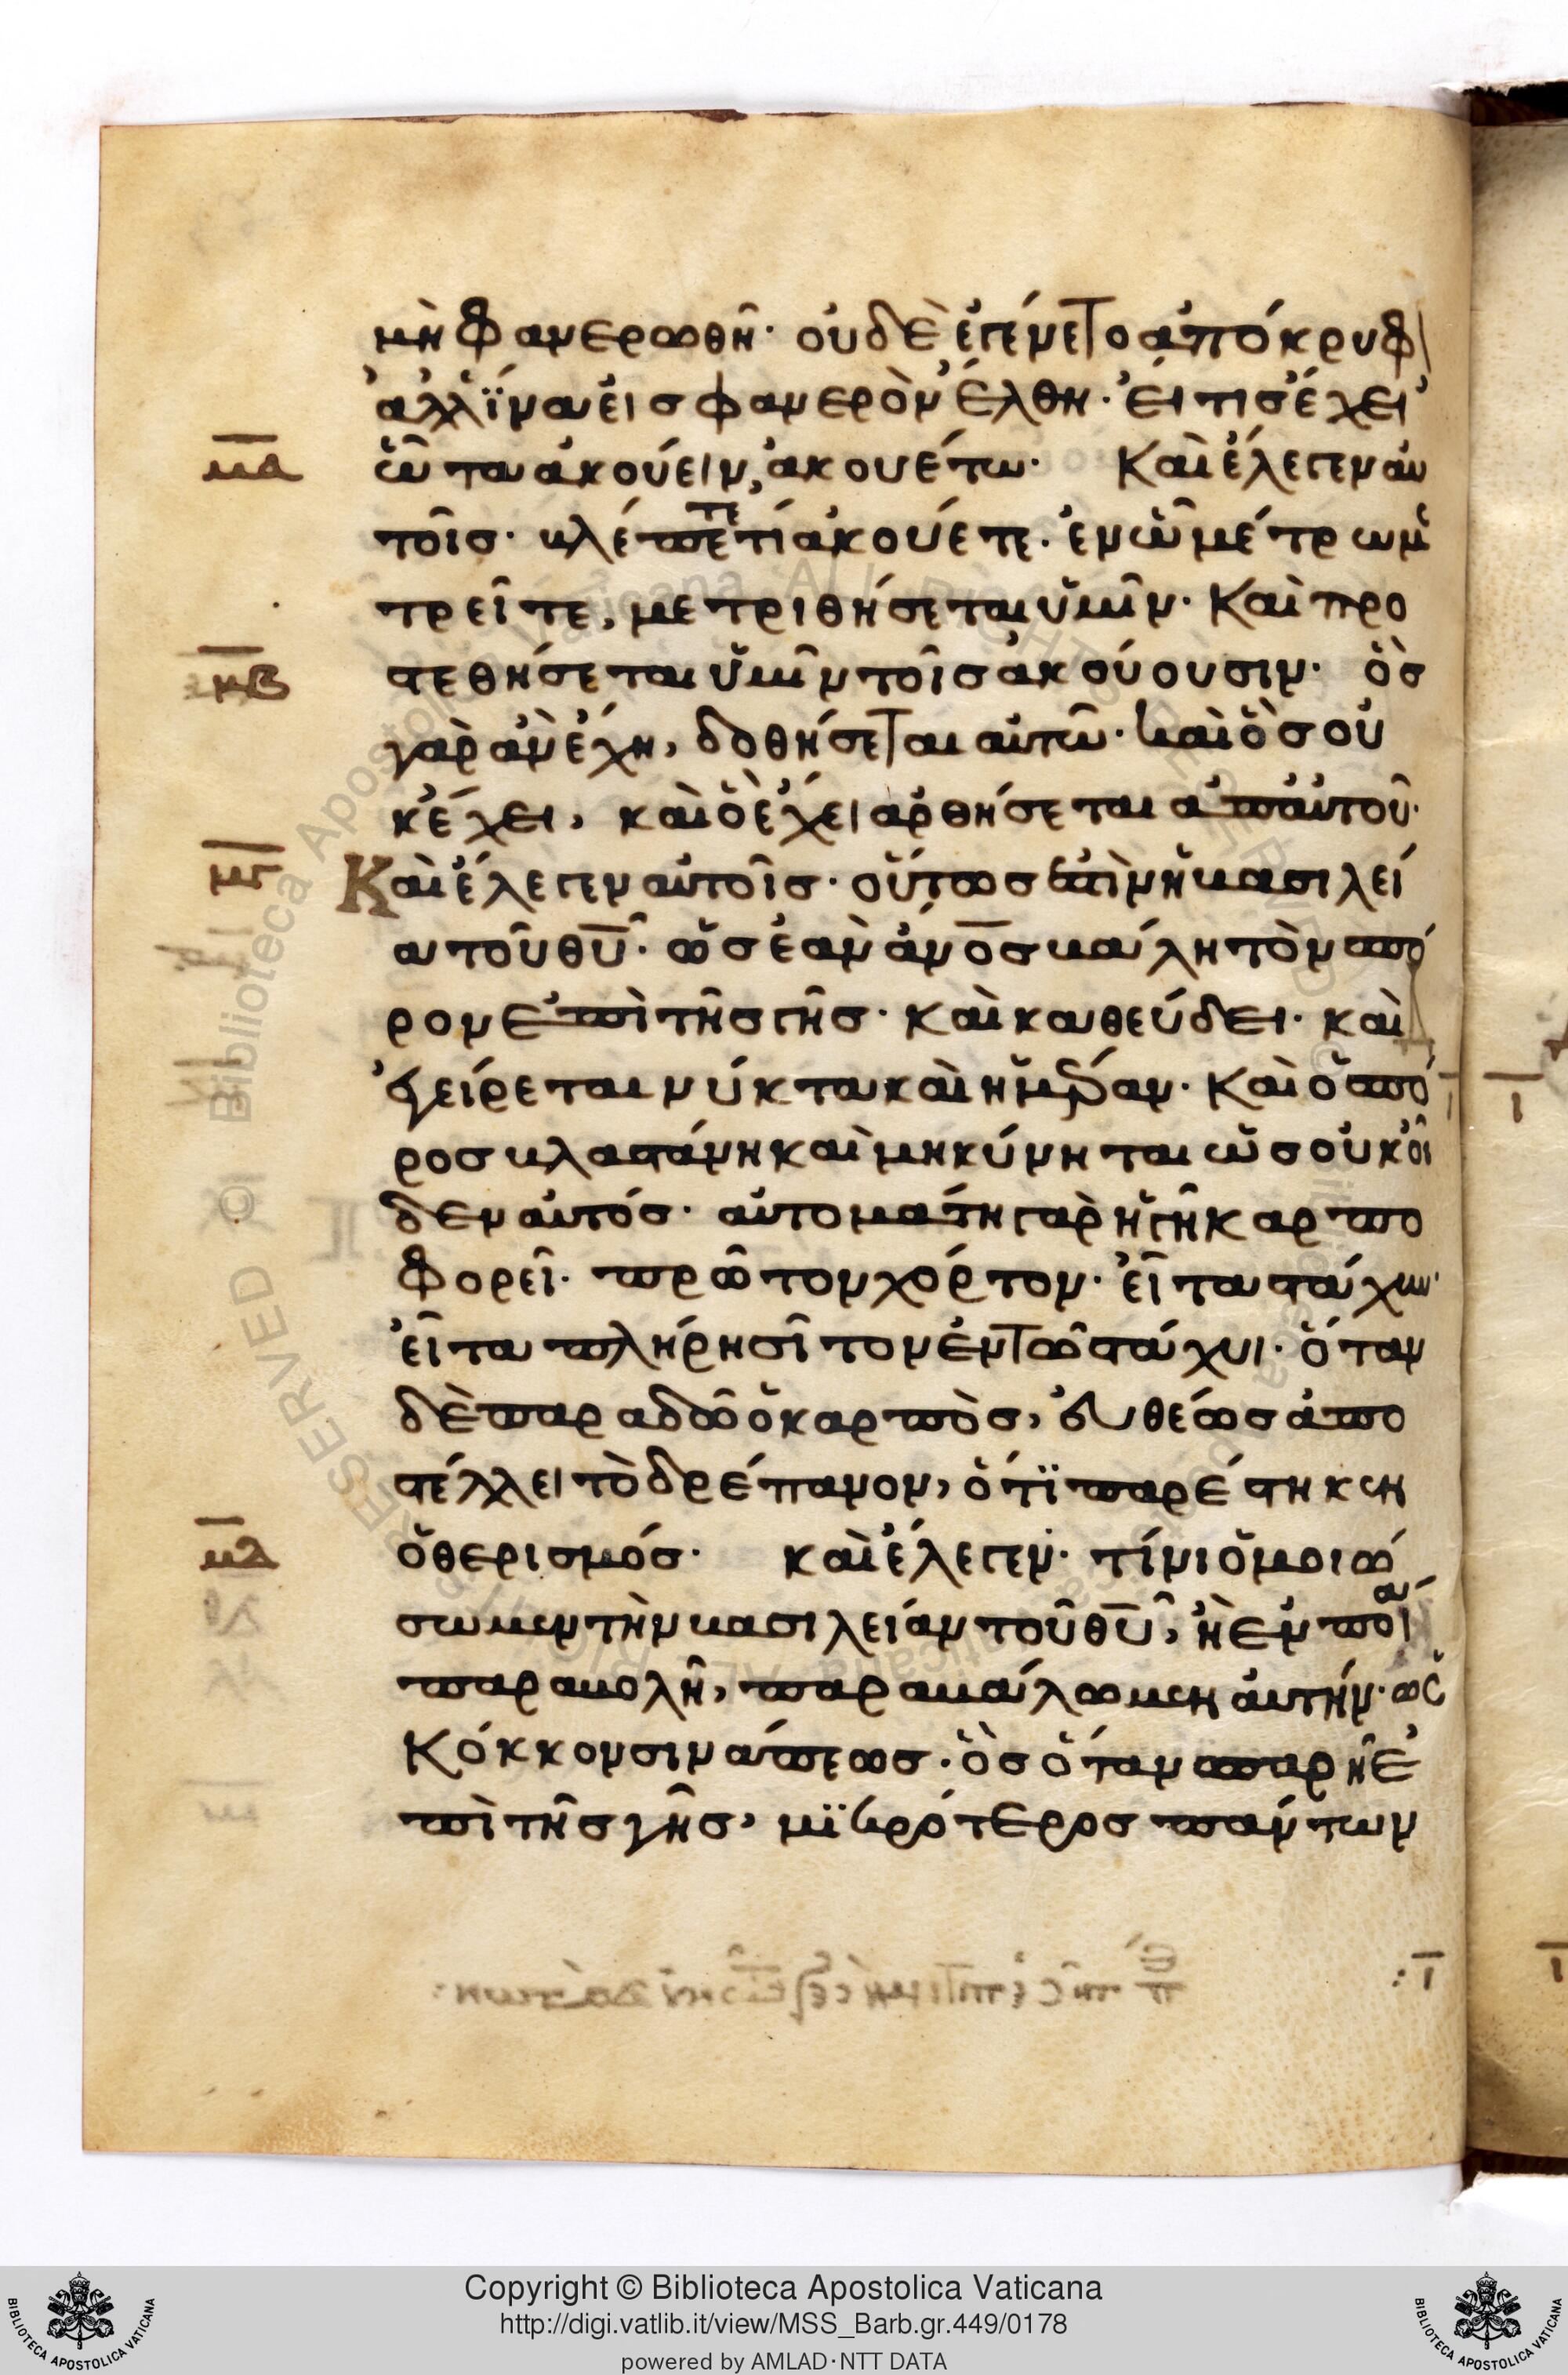 μὴ φανερωθῆ· οὐδὲ ἐγένετο ἀπόκρυφ
ἀλλ ἵνα εἰσ φανερὸν ἔλθη· εἴ τισ ἔχει
μα ὦτα ἀκούειν, ἀκουέτω· Καὶ ἔλεγεν αὐ
τοῖσ· βλέπετε τί ἀκούετε· ἐν ὧ μέτρω με
τρεῖτε, μετριθήσεται ὑμῖν· Καὶ προ
μβ στεθήσεται ὑμῖν τοῖσ ἀκούουσιν· ὃσ
γὰρ ἀν ἔχη, δοθήσεται αὐτῶ· καὶ ὃσ οὐ
κ ἔχει, καὶ ὃ ἔχει ἀρθήσεται ἀπ αὐτοῦ·
μγ Καὶ ἔλεγεν αὐτοῖσ· οὕτωσ ἐστὶν ἡ βασιλεί
α τοῦ θυ· ὡσ ἐὰν ἀνοσ βάλη τὸν σπό
ρον ἐπὶ τῆσ γῆσ· καὶ καθεύδει· καὶ
ἐγείρεται νύκτα καὶ ἡμέραν· Καὶ ὁ σπό
ροσ βλαστάνη καὶ μηκύνηται ὡσ οὐκ οἶ
δεν αὐτόσ· αὐτομάτη γὰρ ἡ γῆ καρπο
φορεῖ· πρῶτον χόρτον· εἶτα στάχυν·
εἶτα πλήρη σῖτον ἐν τῶ στάχυι· ὅταν
δὲ παραδῶ ὁ καρπὸσ, εὐθέωσ ἀπο
στέλλει τὸ δρέπανον, ὅτι παρέστηκεν
μδ ὁ θερισμόσ· καὶ ἔλεγεν· τίνι ὁμοιώ
σωμεν τὴν βασιλείαν τοῦ θυ, ἢ ἐν ποία
παραβολῆ, παραβάλωμεν αὐτήν· ὡσ
Κόκκον σινάπεωσ· ὃσ ὅταν σπαρῆ ἐ
πὶ τῆσ γῆσ, μικρότεροσ πάντων
Copyright © Biblioteca Apostolica Vaticana
http://digi.vatlib.it/view/MSS_Barb.gr.449/0178
powered by AMLAD·NTT DATA
BIBLIOTECA APOSTOLICA VATICANA
BIBLIOTECA APOSTOLICA VATICANA